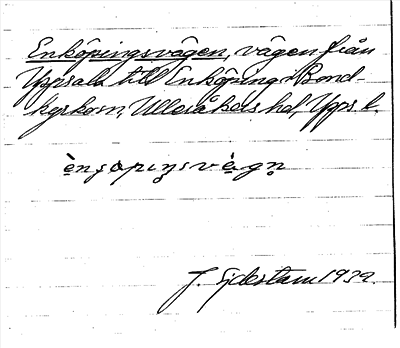 Enköpingsvägen, vägen från
Uppsala till Enköping i Bond-
kyrko sn, Ulleråkers hd, Upps. l.
ènɟöpıŋsvä̀gn̥
J. Sjöstam 1939.